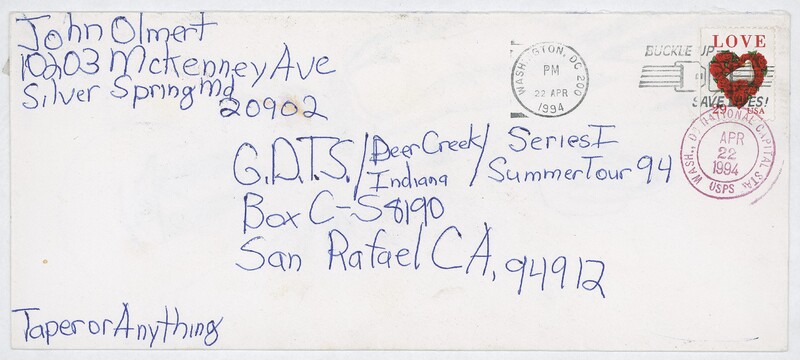 John Olmert
10203 McKenney Ave
Silver Spring Md
20902
WASHINGTON, DC 200
PM
22 APR
1994
BUCKLE UP
SAVE LIVES!
LOVE
29 USA
WASH., DC NATIONAL CAPITAL STA
APR
22
1994
USPS
G.D.T.S. / Deer Creek / Series I
Indiana Summer Tour 94
Box C-S 8190
San Rafael CA, 94912
Taper or Anything